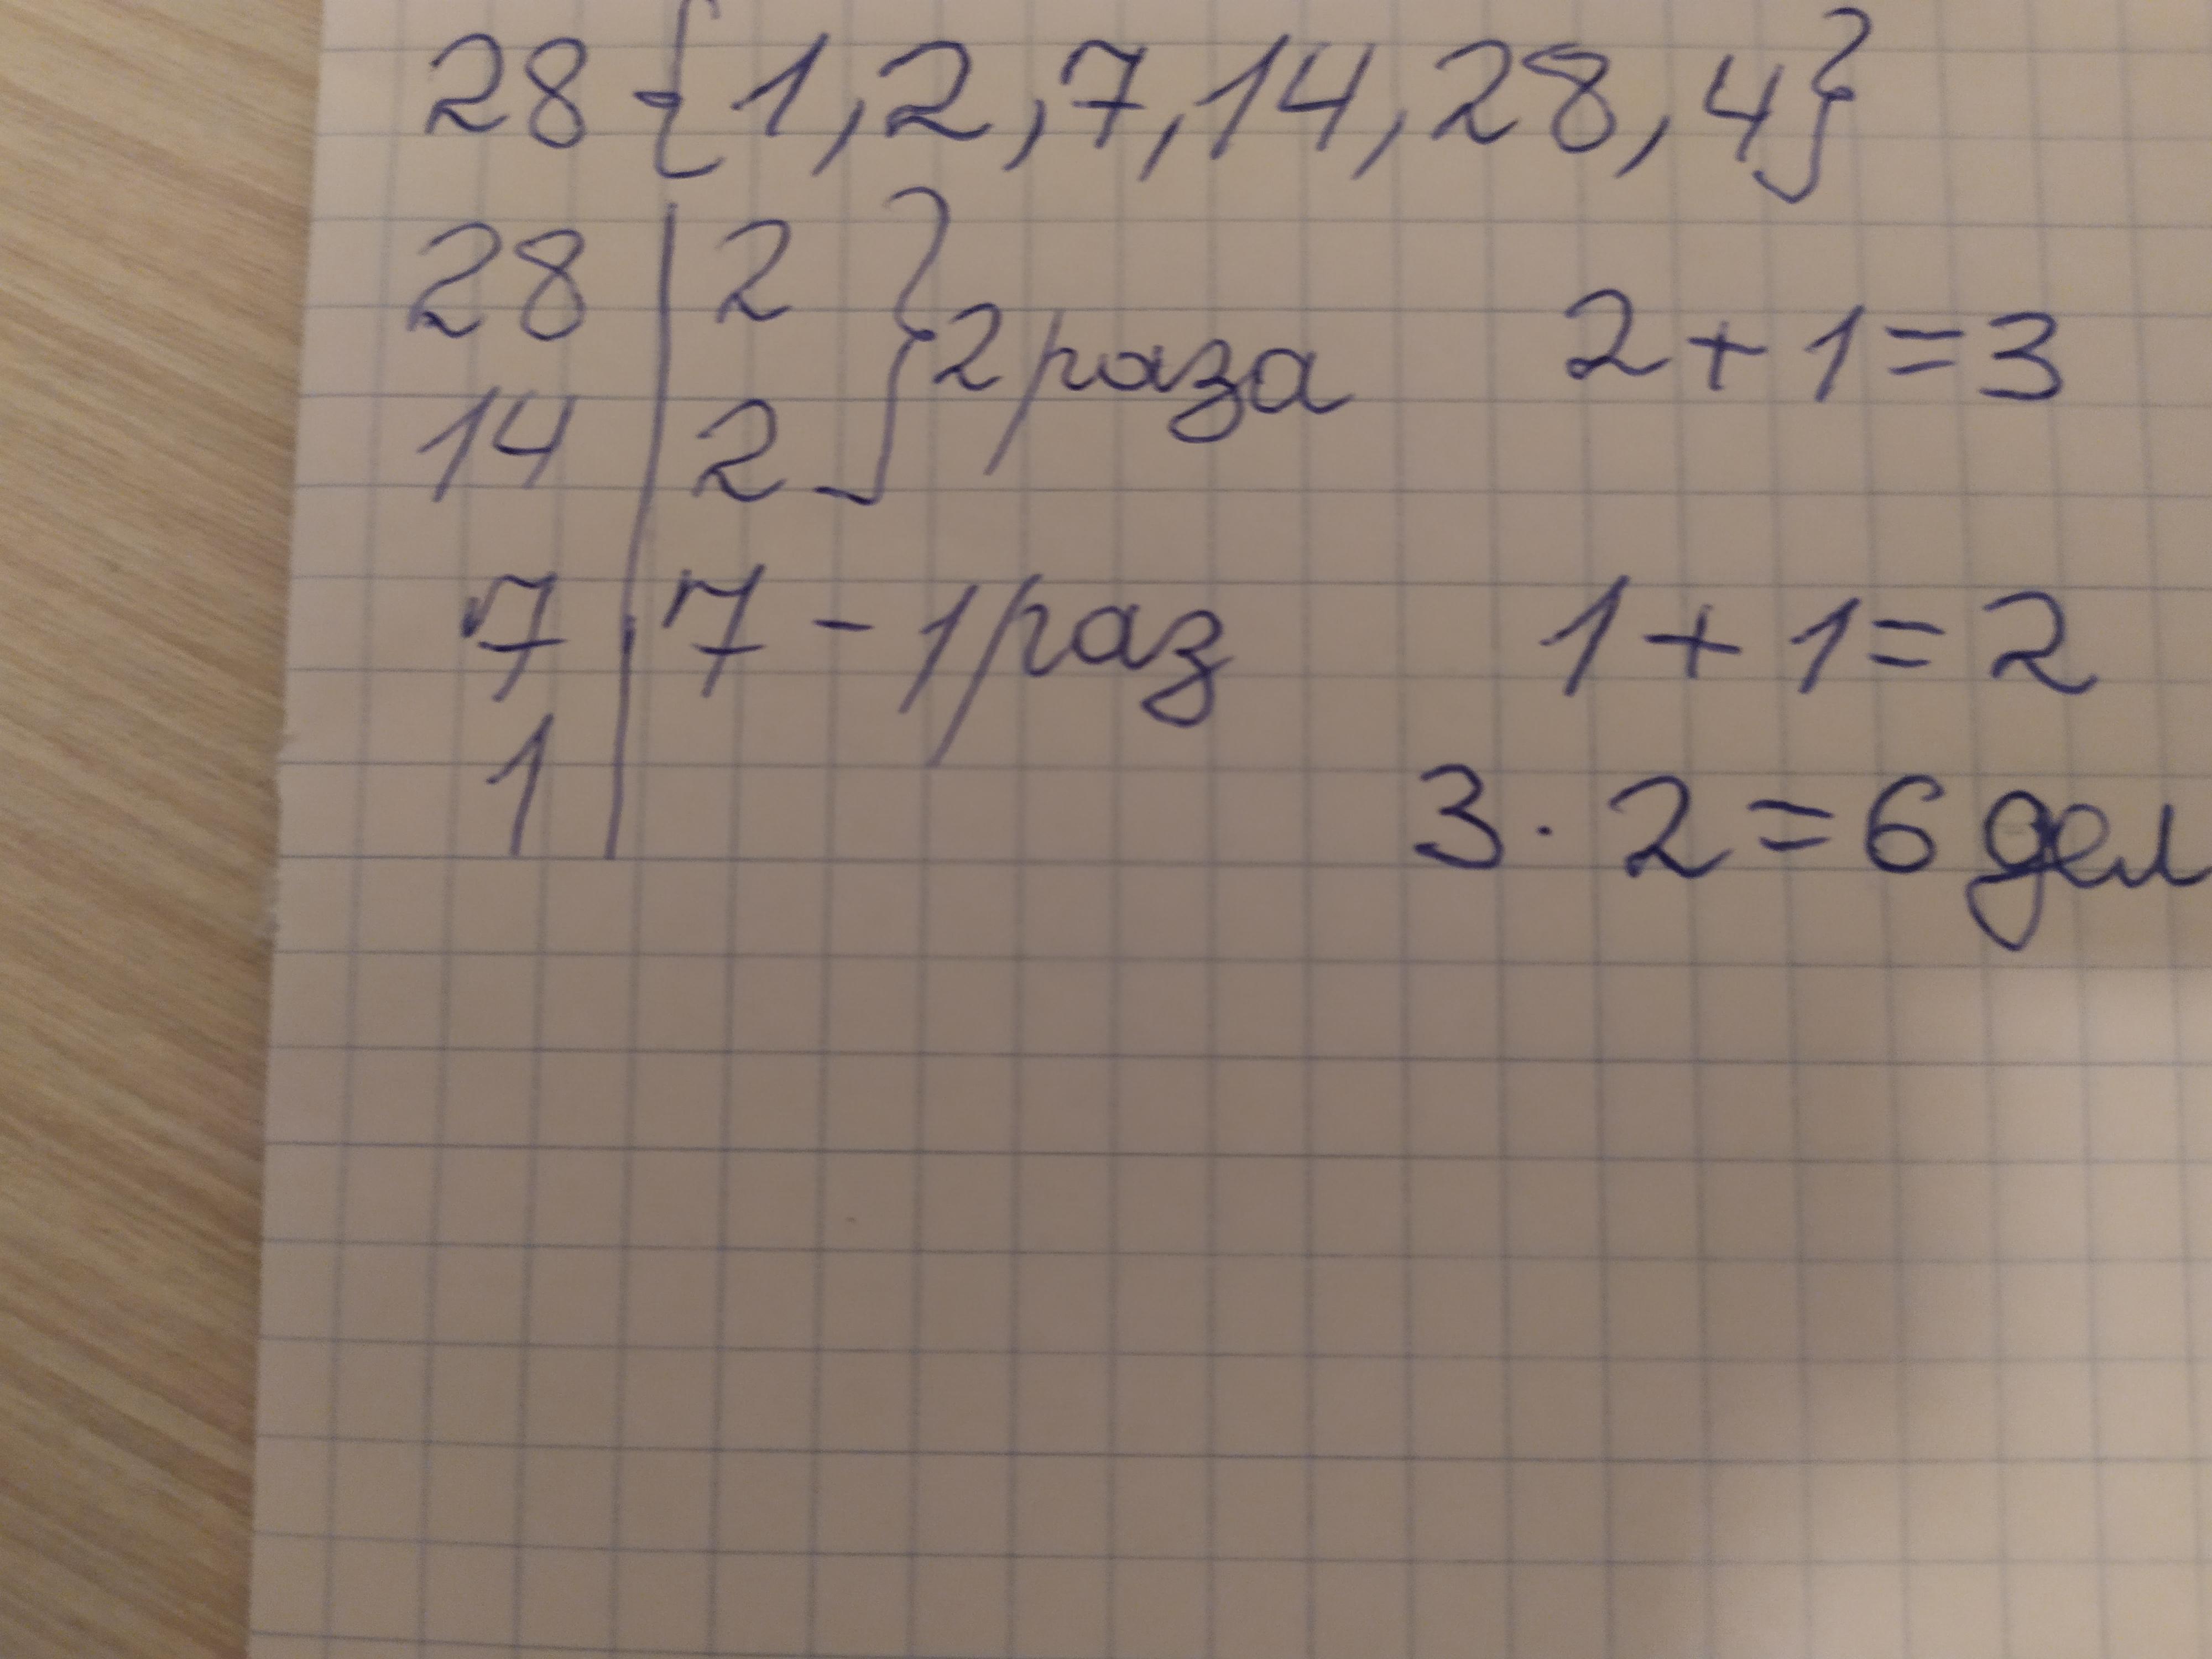 28 {1, 2, 7, 14, 28, 4}
28 | 2 } 2 раза 2 + 1 = 3
14 | 2
7 | 7 - 1 раз 1 + 1 = 2
1 |
3 · 2 = 6 дел